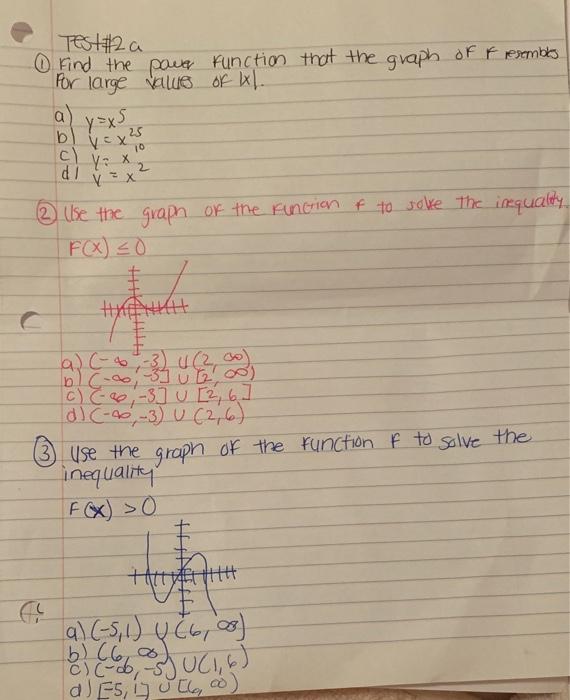 Test#2a
① Find the power function that the graph of F resembles
For large values of |x|.
a) y=x^5
b) y=x^25
c) y=x^10
d) y=x^2
② Use the graph of the function f to solve the inequality.
F(x) ≤ 0
a) (-∞,-3) ∪ (2,∞)
b) (-∞,-3] ∪ [2,∞)
c) (-∞,-3] ∪ [2,6]
d) (-∞,-3) ∪ (2,6)
③ Use the graph of the function F to solve the
inequality
F(x) > 0
a) (-5,1) ∪ (6,∞]
b) (6,∞)
c) (-∞,-5) ∪ (1,6)
d) [-5,1] ∪ [6,∞)